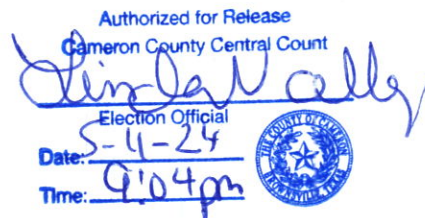 Authorized for Release
Cameron County Central Count
Election Official
Date: 5-4-24
Time: 9:04pm
THE COUNTY OF CAMERON
BROWNSVILLE, TEXAS